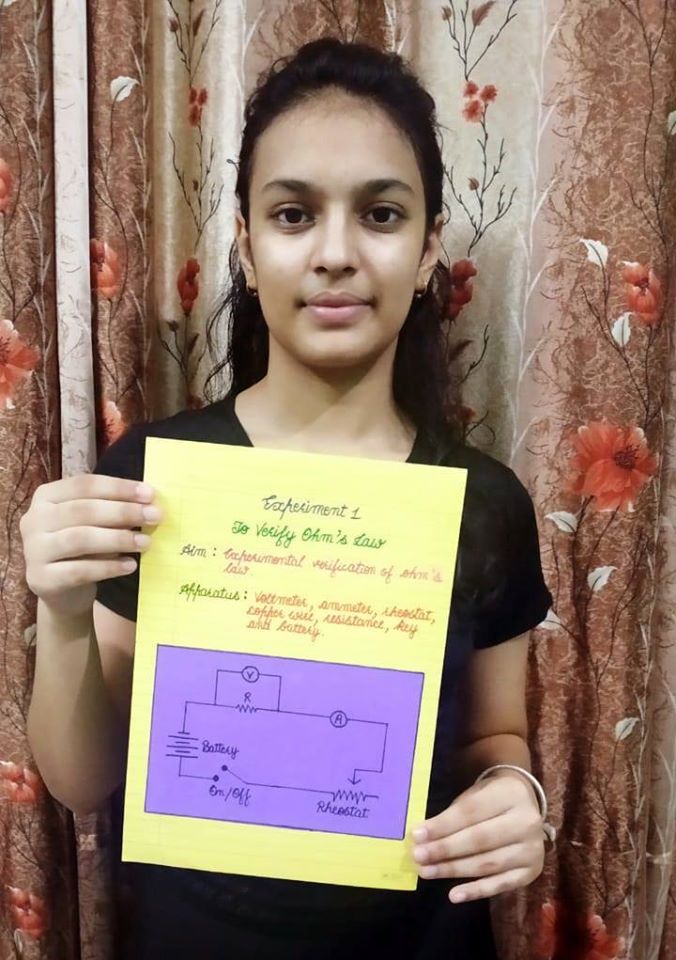 Experiment 1
To Verify Ohm's Law
Aim : Experimental verification of ohm's
law.
Apparatus : Voltmeter, ammeter, rheostat,
copper wire, resistance, key
and battery.
V
R
A
Battery
On/Off
Rheostat